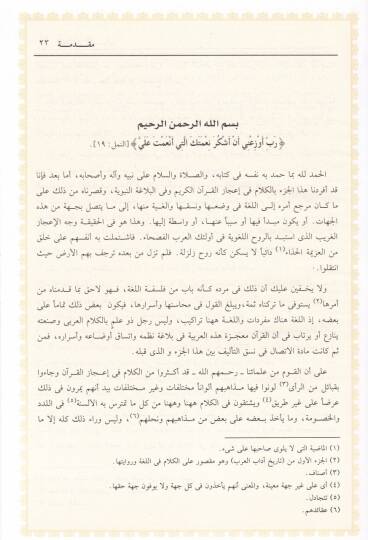 مقدمة ٢٣
بسم الله الرحمن الرحيم
﴿رَبِّ أَوْزِعْنِي أَنْ أَشْكُرَ نِعْمَتَكَ الَّتِي أَنْعَمْتَ عَلَيَّ﴾ [النمل: ١٩].
الحمد لله بما حمد به نفسه فى كتابه، والصلاة والسلام على نبيه وآله وأصحابه، أما بعد فإنا
قد أفردنا هذا الجزء بالكلام فى إعجاز القرآن الكريم وفى البلاغة النبوية، وقصرناه من ذلك على
ما كان مرجع أمره إلى اللغة فى وضعها ونسقها والغية منها، إلى ما يتصل بجهة من هذه
الجهات. أو يكون مبدأ فيها أو سبباً عنها، أو واسطة إليها. وهذا هو فى الحقيقة وجه الإعجاز
الغريب الذى استبد بالروح اللغوية فى أولئك العرب الفصحاء. فاشتملت به أنفسهم على خلق
من العزيمة الحذاء(١) دائباً لا يسكن كأنه روح زلزلة. فلم تزل من بعده ترجف بهم الأرض حيث
انتقلوا.
ولا يخفين عليك أن ذلك فى مرده كأنه باب من فلسفة اللغة، فهو لاحق بما قدمناه من
أمرها(٢) يستوفى ما تركناه ثمة، ويبلغ القول فى محاسنها وأسرارها، فيكون بعض ذلك تماماً على
بعضه، إذ اللغة هناك مفردات واللغة ههنا تراكيب، وليس رجل ذو علم بالكلام العربى وصنعته
ينازع أو يرتاب فى أن القرآن معجزة هذه العربية فى بلاغة نظمه واتساق أوضاعه وأسراره، فمن
ثم كانت مادة الاتصال فى نسق التأليف بين هذا الجزء و الذى قبله.
على أن القوم من علمائنا - رحمهم الله - قد أكثروا من الكلام فى إعجاز القرآن وجاءوا
بقبائل من الرأى(٣) لونوا فيها مذاهبهم ألواناً مختلفات وغير مختلفات بيد أنهم يمرون فى ذلك
عرضاً على غير طريق(٤) ويشتقون فى الكلام ههنا وههنا من كل ما تمترس به الألسنة(٥) فى اللدد
والخصومة، وما يأخذ بعضه على بعض من مذاهبهم ونحلهم(٦)، وليس وراء ذلك كله إلا ما
(١) الماضية التى لا يلوى صاحبها على شىء.
(٢) الجزء الأول من (تاريخ آداب العرب) وهو مقصور على الكلام فى اللغة وروايتها.
(٣) أصناف.
(٤) أى على غير جهة معينة، والمعنى أنهم يأخذون فى كل جهة ولا يوفون جهة حقها.
(٥) تتجادل.
(٦) عقائدهم.